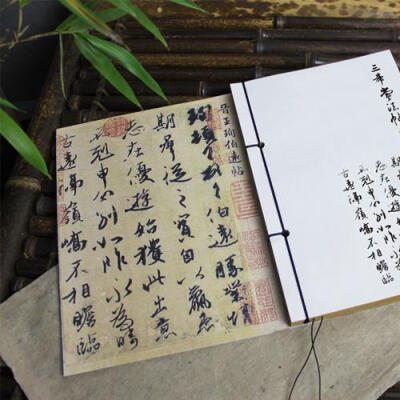 三希堂法帖
志在優遊始
不剋申分別如昨永為
古遠隔嶺嶠不相瞻臨
晉王珣伯遠帖
珣頓首頓首伯遠勝業情
期群從之寶自以羸患
志在優遊始獲此出意
不剋申分別如昨永為疇
古遠隔嶺嶠不相瞻臨